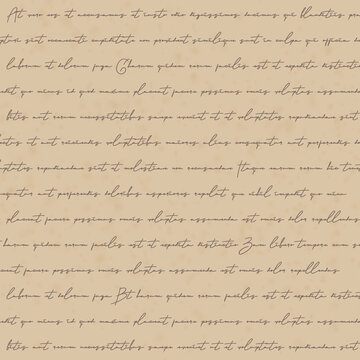 At vero eos et accusamus et iusto odio dignissimos ducimus qui blanditiis
sint occaecati cupiditate non provident similique sunt in culpa qui officia
laborum et dolorum fuga Eharum quidem rerum facilis est et expedita distinctio
quo minus id quod maxime placeat facere possimus omnis voluptas assumenda est
aut rerum necessitatibus saepe eveniet ut et voluptates repudiandae sint et
ut aut reiciendis voluptatibus maiores alias consequatur aut perferendis
repudiandae sint et molestiae non recusandae Itaque earum rerum hic
aut perferendis doloribus asperiores repellat quo nihil impedit quo minus
placeat facere possimus omnis voluptas assumenda est omnis dolor repellendus
harum quidem rerum facilis est et expedita distinctio Nam libero tempore cum
placeat facere possimus omnis voluptas assumenda est omnis dolor repellendus
laborum et dolorum fuga Et harum quidem rerum facilis est et expedita distinctio
quo minus id quod maxime placeat facere possimus omnis voluptas assumenda
aut rerum necessitatibus saepe eveniet ut et voluptates repudiandae sint et